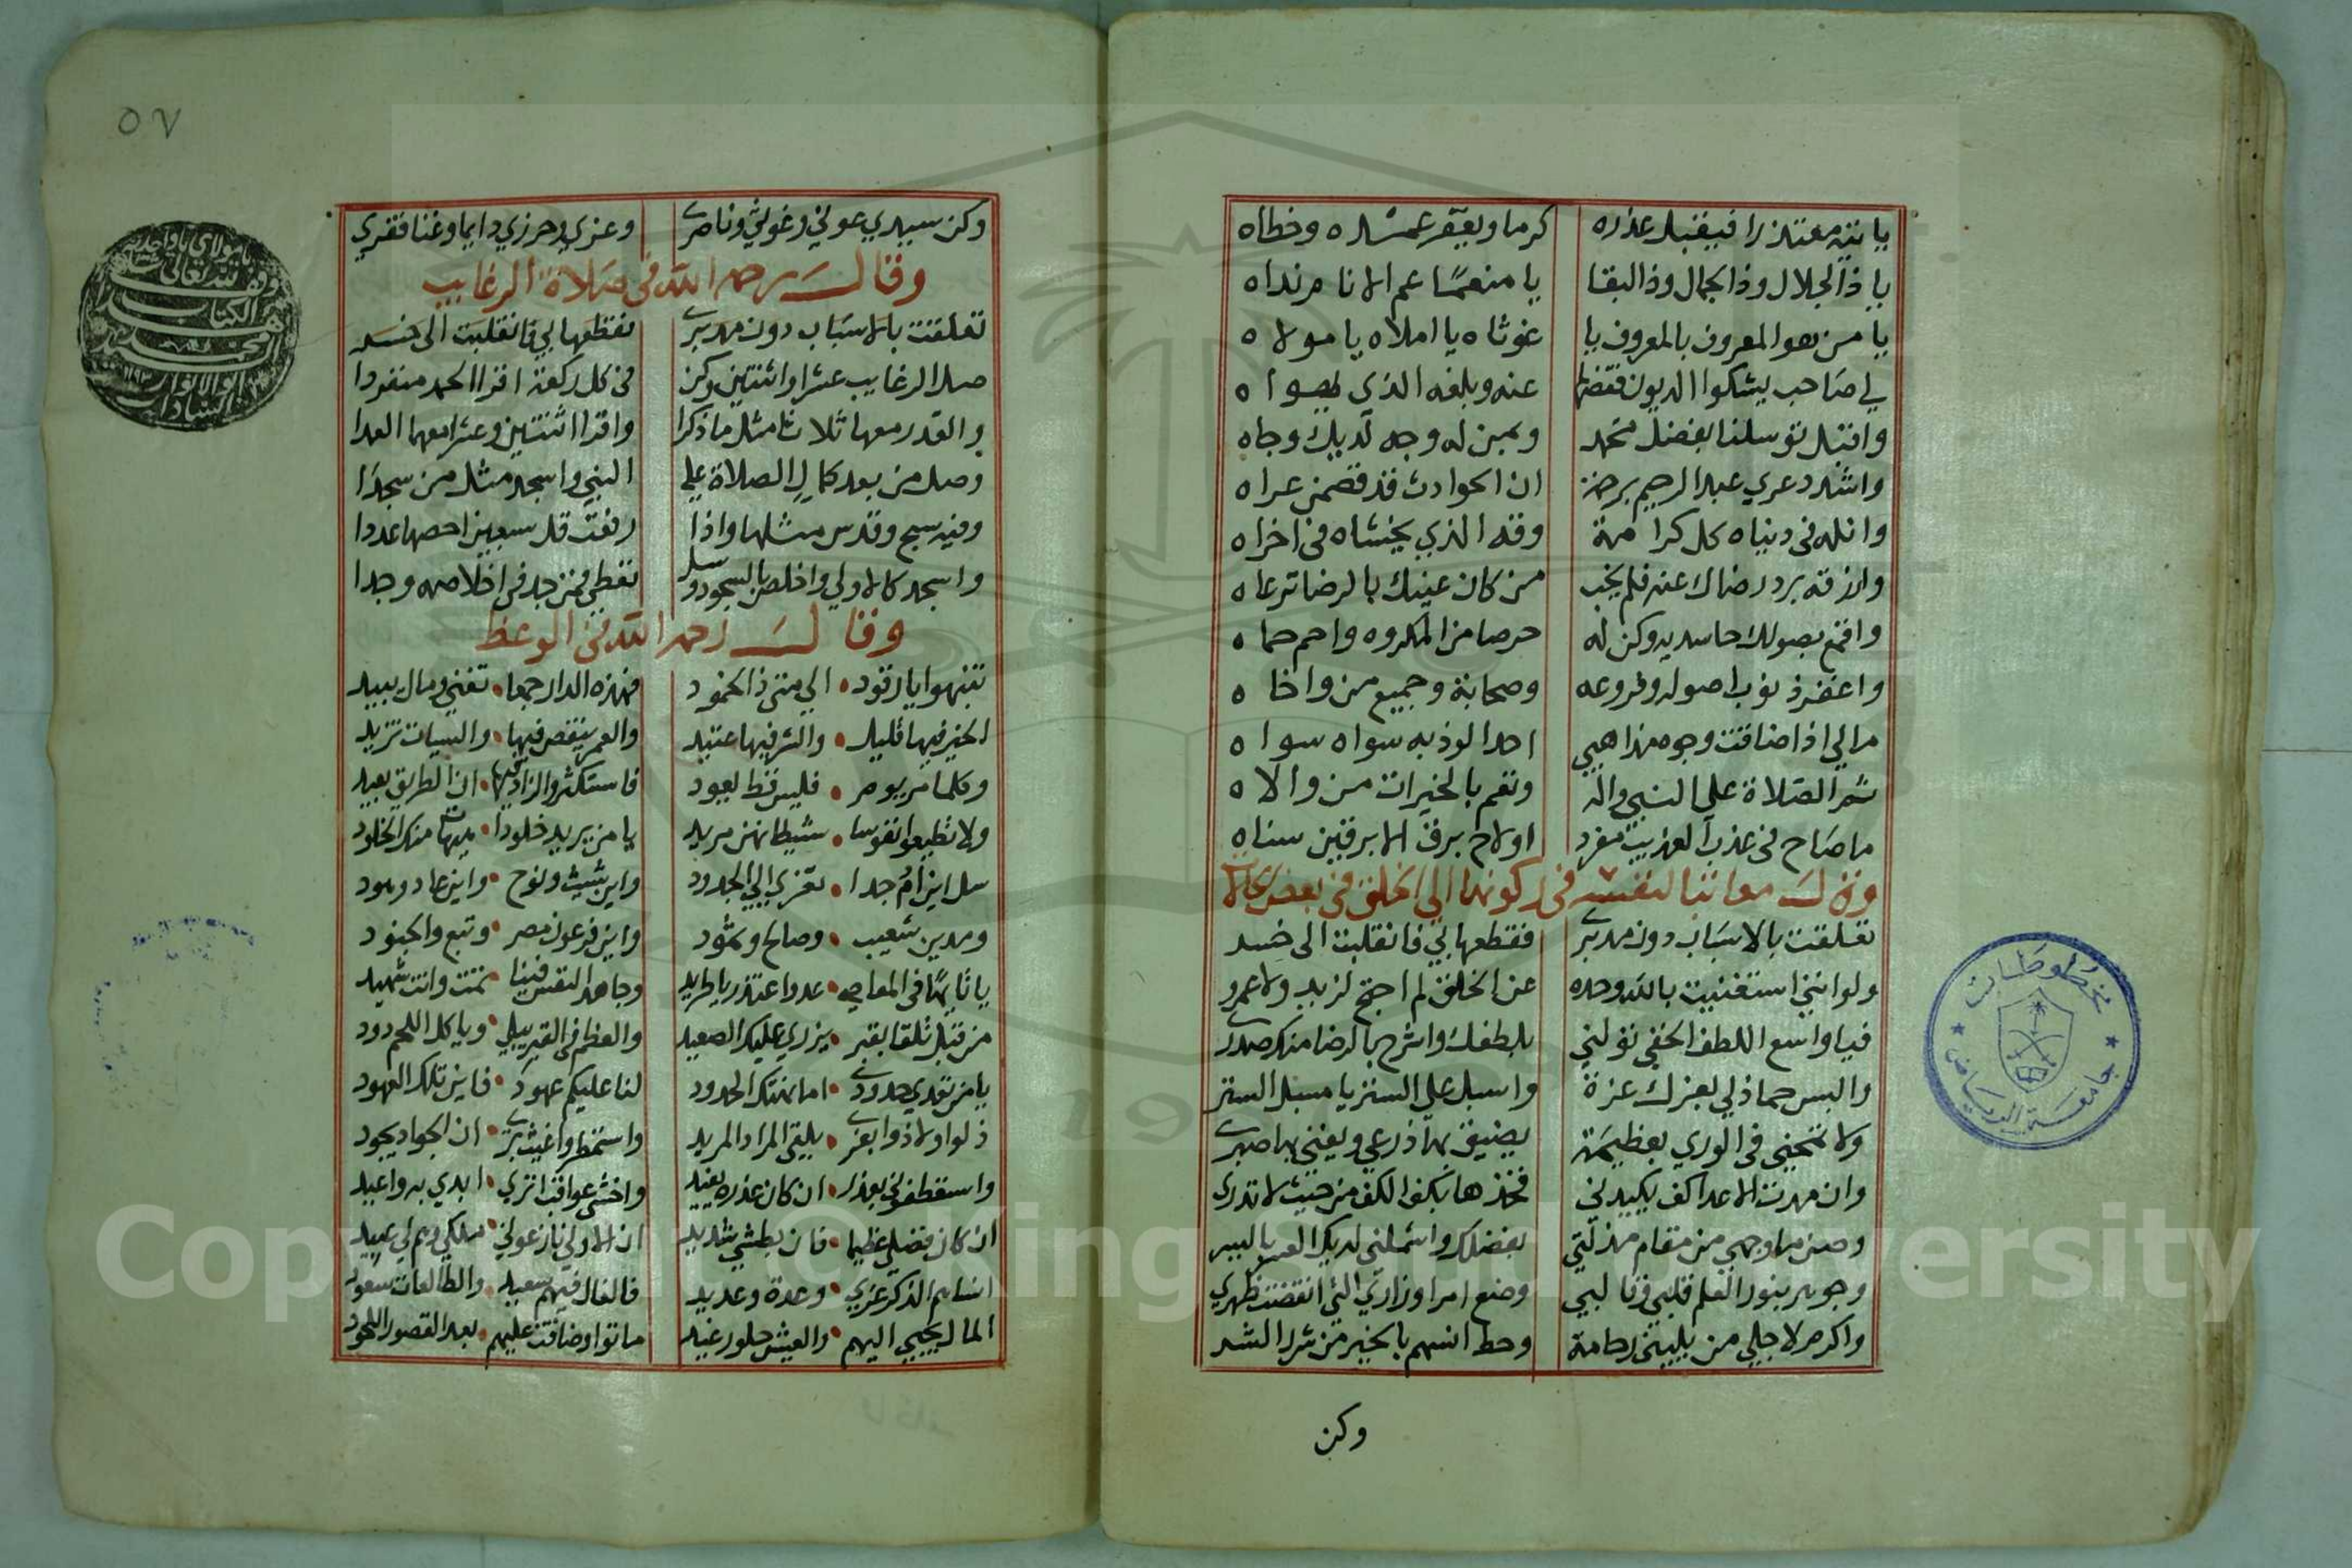 ياتيه معتذرا فيقبل عذره كرما ويغفر عمده وخطاه
يا ذا الجلال وذا الجمال وذا البقا يا منعما عم الانام نداه
يا من هو المعروف بالمعروف يا غوثاه يا املاه يا مولاه
لي صاحب يشكوا الديون فقضها عنه وبلغه الذي يهواه
واقبل توسلنا بفضل محمد وبمن له وجه لديك وجاه
واشدد عري عبد الرحيم برحمة ان الحوادث قد فصمن عراه
وانله في دنياه كل كرامة وقه الذي يخشاه في اخراه
واذقه برد رضاك عنه فلم يخب من كان عينك بالرضا ترعاه
واقمع بصولك حاسديه وكن له حرصا من المكروه واحم حماه
واغفر ذنوب اصوله وفروعه وصحابة وجميع من واخاه
مالي اذا ضاقت وجوه مذاهبي احدا الوذ به سواه سواه
ثم الصلاة على النبي واله وتعم بالخيرات من والاه
ما صاح في عذب العذيب مغرد او لاح برق الابرقين سناه
وقال معاتبا لنفسه في ركونها الي الخلق في بعض
تعلقت بالاسباب دون مدبري فقطعها بي فانقلبت الى خسر
ولو انني استغنيت بالله وحده عن الخلق لم احتج لزيد ولا عمرو
فيا واسع اللطف الخفي تولني بلطفك واشرح بالرضا منك صدري
والبس حما ذلي بعزك عزة واسبل علي الستر يا مسبل الستر
ولا تمتحني في الوري بعظيمة يضيق بها ذرعي ويفني بها صبري
وان مدت الاعدا كف يكيدني فخذها بكف الكف من حيث لا تدري
وصن ما وجهي من مقام مذلتي بفضلك واشملني لديك العسر باليسر
وجوهر بنور العلم قلبي وقالبي وضع اصر اوزاري التي انقضت ظهري
واكرم لاجلي من يليني رحامة وحط انسهم بالخير من شر الشر
وكن
٥٧
وكن سيدي عوني وغوثي وناصري وعزي وحرزي دايما وغنا فقري
وقال رحمه الله في صلاة الرغايب
تعلقت بالاسباب دون مدبري فقطعها بي فانقلبت الى خسر
صل الرغايب عشرا واثنتين وكن في كل ركعة اقرا الحمد منفردا
والقدر معها ثلاثا مثل ما ذكرا واقرا اثنتين وعشرا معهما العدا
وصل من بعد كمال الصلاة علي النبي واسجد مثل من سجدا
وفيه سبح وقدس مثلها واذا رفعت قل سبعين احصها عددا
واسجد كالاولي واخلص بالسجود وسل تعطي فمن جد في اخلاصه وجدا
وقال رحمه الله في الوعظ
تنبهوا يا رقود الي متى ذا الجمود فهذه الدار جمعا تفني ومال يبيد
الخير فيها قليل والشر فيها عتيد والعمر ينقص فيها والسيات تزيد
وكلما مر يوم فليس قط يعود فاستكثروا الزاد فيها ان الطريق بعيد
ولا تطيعوا نفوسا شيطانهن مريد يا من يريد خلودا هيهات منك الخلود
سل اين ام جدا تعزي الي الجدود واين شيث ونوح واين عاد وهود
ومدين شعيب وصالح وثمود واين فرعون مصر وتبع والجنود
يا تايها في المعاصي عد واعتذر يا طريد وجاهد النفس فينا تمت وانت شهيد
من قبل تلقا بقبر يزري عليك الصعيد والعظم في القبر يبلي وياكل اللحم دود
يا من تعدي حدودي اما نهتك الحدود لنا عليكم عهود فاين تلك العهود
ذلوا ولاذوا بعز يلقي المراد المريد واستمطروا غيث بري ان الجواد يجود
واستعطفوني بعذر ان كان عذر يفيد واخشى عواقب اتري ابدي به واعيد
ان كان فضلي عظيما فان بطشي شديد ان الاولي نازعوني ملكي وهم لي عبيد
انساهم الذكر عزي وعدة وعديد فالفال فيهم سعيد والطالعات سعود
المال يجبي اليهم والعيش حلو رغيد ماتوا وضاقت عليهم بعد القصور اللحود
مخطوطات
جامعة الرياض
Copyright © King Saud University